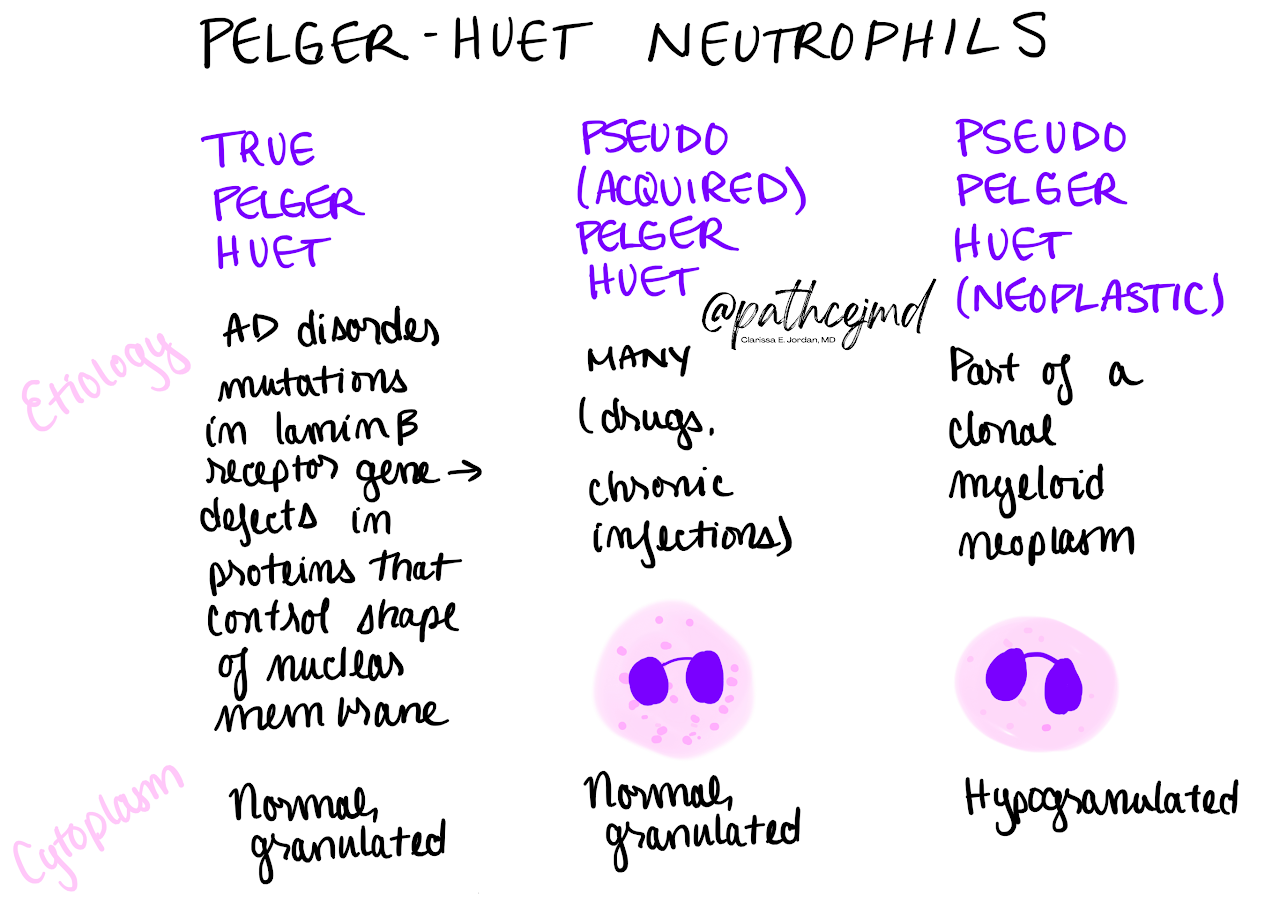 PELGER-HUET NEUTROPHILS
TRUE
PELGER
HUET
PSEUDO
(ACQUIRED)
PELGER
HUET
PSEUDO
PELGER
HUET
(NEOPLASTIC)
@pathcejmd
Clarissa E. Jordan, MD
Etiology
AD disorder
mutations
in lamin B
receptor gene →
defects in
proteins that
control shape
of nuclear
membrane
MANY
(drugs,
chronic
infections)
Part of a
clonal
myeloid
neoplasm
Cytoplasm
Normal,
granulated
Normal,
granulated
Hypogranulated